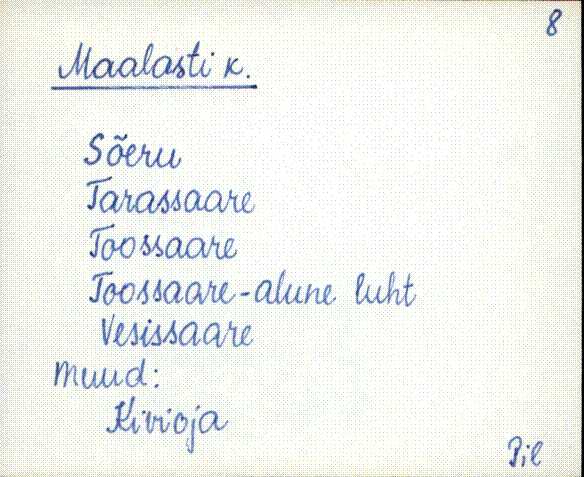 8
Maalasti k.
Sõeru
Tarassaare
Toossaare
Toossaare-alune luht
Vesissaare
Muud:
Kivioja
Pil